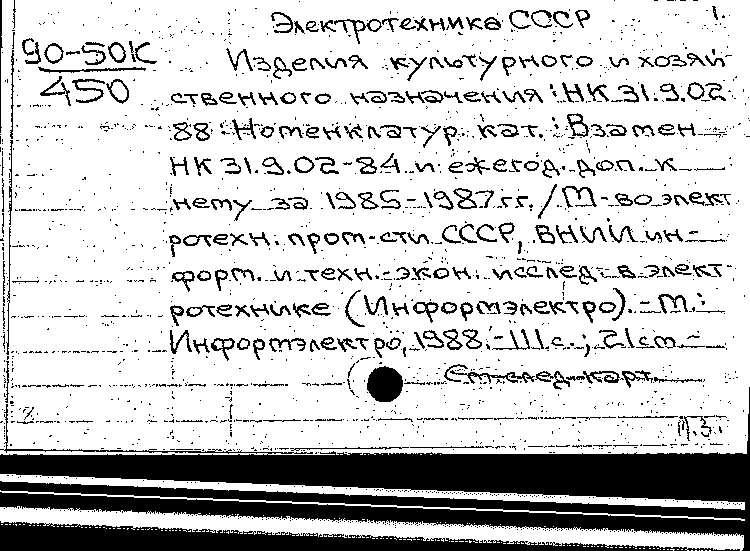 Электротехника СССР 1.
90-50К
450
Изделия культурного и хозяй
ственного назначения : НК 31.9.02
88 : Номенклатур. кат. : Взамен
НК 31.9.02-84 и ежегод. доп. к
нему за 1985-1987 гг. / М-во элект
ротехн. пром-сти СССР, ВНИИ ин-
форм. и техн.-экон. исслед. в элект
ротехнике (Информэлектро). - М.:
Информэлектро, 1988. - 111 с.; 21 см. -
См. след. карт.
8.
М.З.